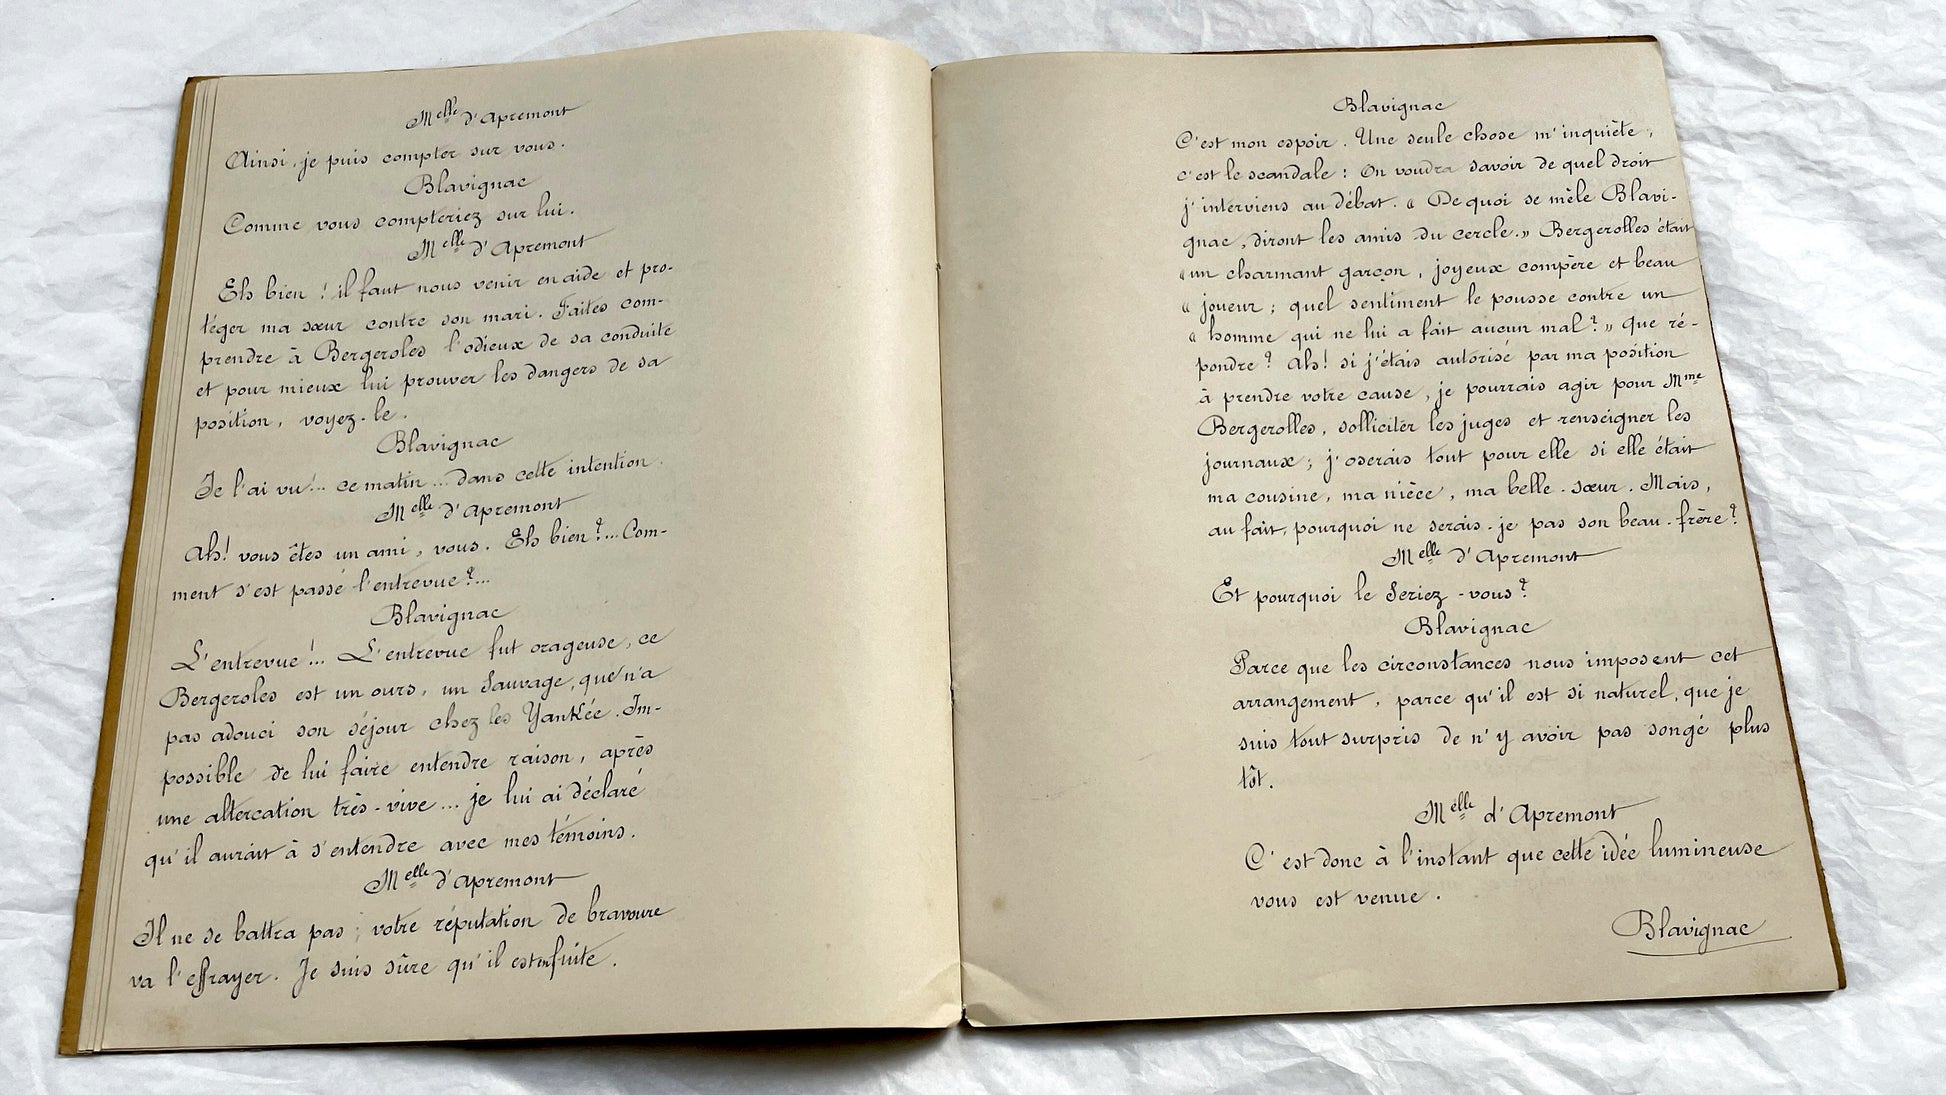 Melle d'Apremont
Ainsi, je puis compter sur vous.
Blavignac
Comme vous compteriez sur lui.
Melle d'Apremont
Eh bien ! il faut nous venir en aide et pro-
téger ma sœur contre son mari. Faites com-
prendre à Bergeroles l'odieux de sa conduite
et pour mieux lui prouver les dangers de sa
position, voyez-le.
Blavignac
Je l'ai vu!... ce matin... dans cette intention.
Melle d'Apremont
Ah! vous êtes un ami, vous. Eh bien?... Com-
ment s'est passé l'entrevue?...
Blavignac
L'entrevue!... L'entrevue fut orageuse, ce
Bergeroles est un ours, un Sauvage, que n'a
pas adouci son séjour chez les Yankée. Im-
possible de lui faire entendre raison, après
une altercation très-vive... je lui ai déclaré
qu'il aurait à s'entendre avec mes témoins.
Melle d'Apremont
Il ne se battra pas ; votre réputation de bravoure
va l'effrayer. Je suis sûre qu'il est en fuite.
Blavignac
C'est mon espoir. Une seule chose m'inquiète,
c'est le scandale : On voudra savoir de quel droit
j'interviens au débat. « De quoi se mêle Blavi-
gnac, diront les amis du cercle. » Bergerolles était
« un charmant garçon, joyeux compère et beau
« joueur ; quel sentiment le pousse contre un
« homme qui ne lui a fait aucun mal ? » Que ré-
pondre ? Ah! si j'étais autorisé par ma position
à prendre votre cause, je pourrais agir pour Mme
Bergerolles, solliciter les juges et renseigner les
journaux ; j'oserais tout pour elle si elle était
ma cousine, ma nièce, ma belle-sœur. Mais,
au fait, pourquoi ne serais-je pas son beau-frère ?
Melle d'Apremont
Et pourquoi le Seriez-vous ?
Blavignac
Parce que les circonstances nous imposent cet
arrangement, parce qu'il est si naturel, que je
suis tout surpris de n'y avoir pas songé plus
tôt.
Melle d'Apremont
C'est donc à l'instant que cette idée lumineuse
vous est venue.
Blavignac